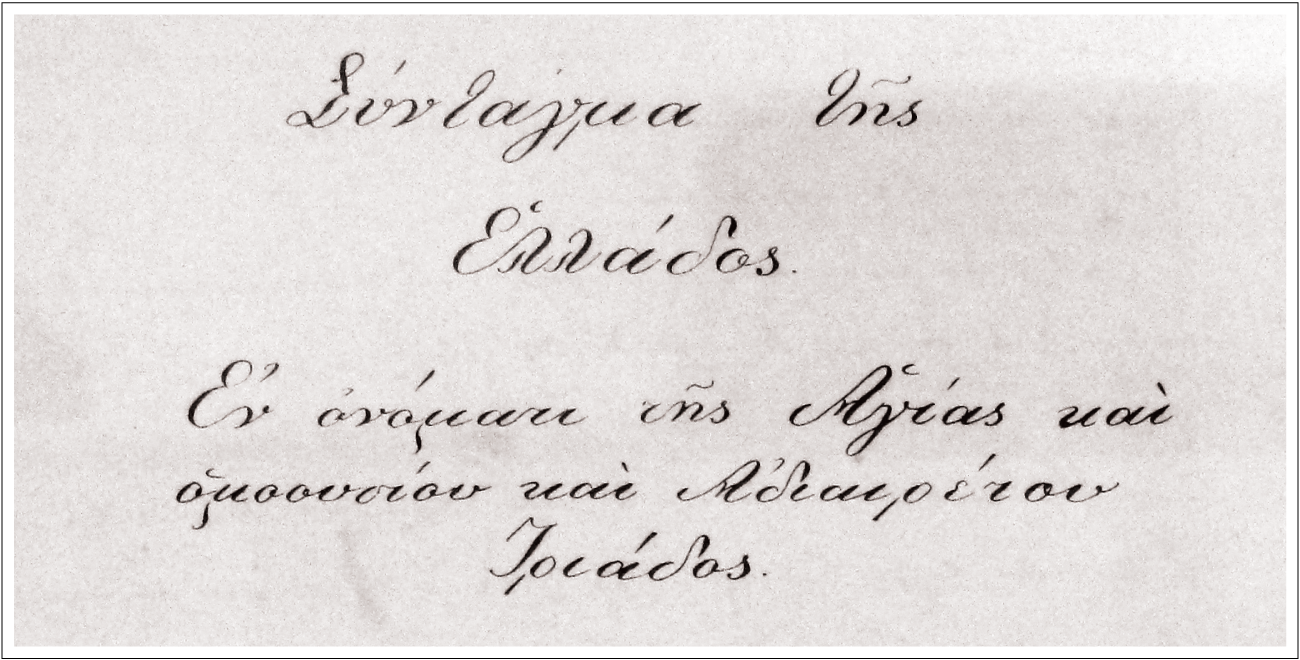 Σύνταγμα τῆς
Ἑλλάδος.
Ἐν ὀνόματι τῆς Ἁγίας καὶ
ὁμοουσίου καὶ Ἀδιαιρέτου
Τριάδος.